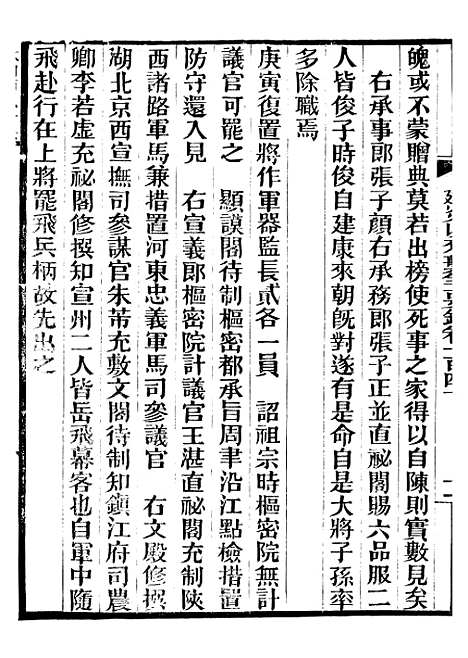 魄或不蒙贈典莫若出榜使死事之家得以自陳則實數見矣
右承事郎張子顏右承務郎張子正並直祕閣賜六品服二
人皆俊子時俊自建康來朝旣對遂有是命自是大將子孫率
多除職焉
庚寅復置將作軍器監長貳各一員　詔祖宗時樞密院無計
議官可罷之　顯謨閣待制樞密都承旨周聿沿江點檢措置
防守還入見　右宣義郎樞密院計議官王湛直祕閣充制陝
西諸路軍馬兼措置河東忠義軍馬司參議官　右文殿修撰
湖北京西宣撫司參謀官朱芾充敷文閣待制知鎮江府司農
卿李若虛充祕閣修撰知宣州二人皆岳飛幕客也自軍中隨
飛赴行在上將罷飛兵柄故先出之